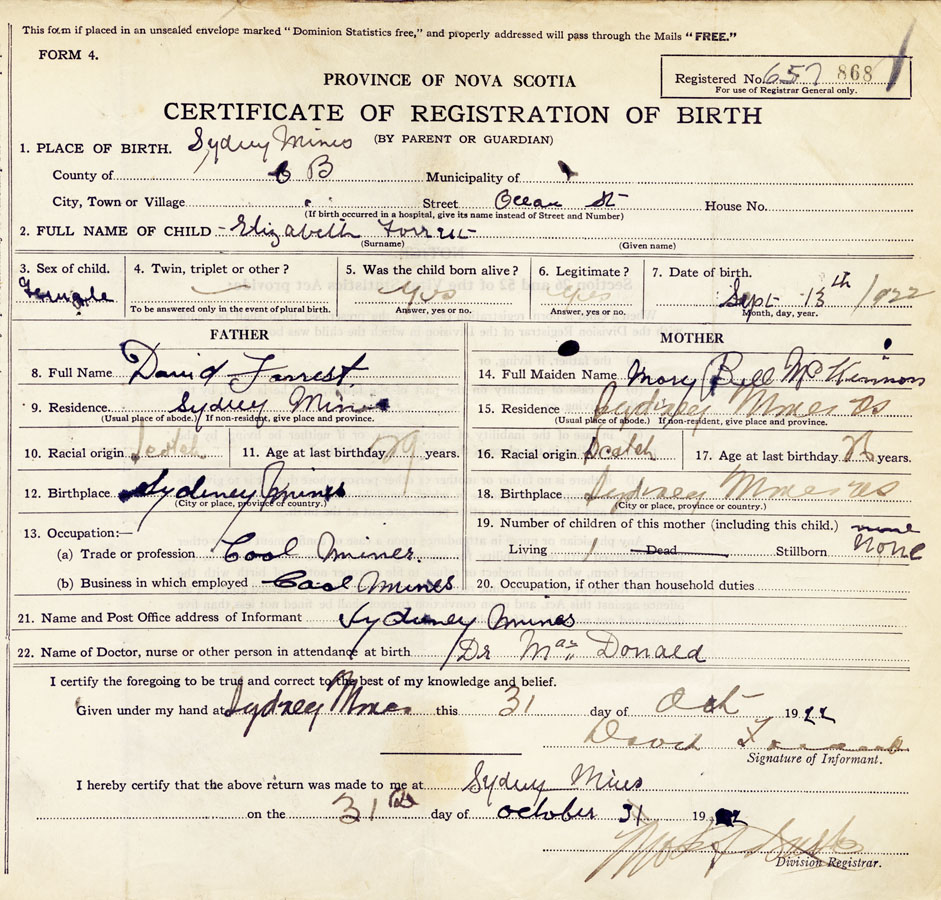 This form if placed in an unsealed envelope marked "Dominion Statistics free," and properly addressed will pass through the Mails "FREE."
FORM 4.
PROVINCE OF NOVA SCOTIA
Registered No. 657 868
For use of Registrar General only.
CERTIFICATE OF REGISTRATION OF BIRTH
(BY PARENT OR GUARDIAN)
1. PLACE OF BIRTH. Sydney Mines
County of C B Municipality of
City, Town or Village Street Ocean St House No.
(If birth occurred in a hospital, give its name instead of Street and Number)
2. FULL NAME OF CHILD - Elizabeth Forrest
(Surname) (Given name)
3. Sex of child. 4. Twin, triplet or other? 5. Was the child born alive? 6. Legitimate? 7. Date of birth.
Female Yes Yes Sept 13th 1922
To be answered only in the event of plural birth. Answer, yes or no. Answer, yes or no. Month, day, year.
FATHER MOTHER
8. Full Name David Forrest 14. Full Maiden Name Mary Bell McKinnon
9. Residence. Sydney Mines 15. Residence Sydney Mines
(Usual place of abode.) If non-resident, give place and province. (Usual place of abode.) If non-resident, give place and province.
10. Racial origin 11. Age at last birthday 29 years. 16. Racial origin Scotch 17. Age at last birthday years.
12. Birthplace Sydney Mines 18. Birthplace Sydney Mines
(City or place, province or country.) (City or place, province or country.)
13. Occupation:— 19. Number of children of this mother (including this child.) none
(a) Trade or profession Cool Miner. Living 1 Dead Stillborn None
(b) Business in which employed Coal Mines 20. Occupation, if other than household duties
21. Name and Post Office address of Informant Sydney Mines
22. Name of Doctor, nurse or other person in attendance at birth Dr MacDonald
I certify the foregoing to be true and correct to the best of my knowledge and belief.
Given under my hand at Sydney Mines this 31 day of Oct 1922
David Forrest
Signature of Informant.
I hereby certify that the above return was made to me at Sydney Mines
on the 31st day of October 31 1922
Division Registrar.